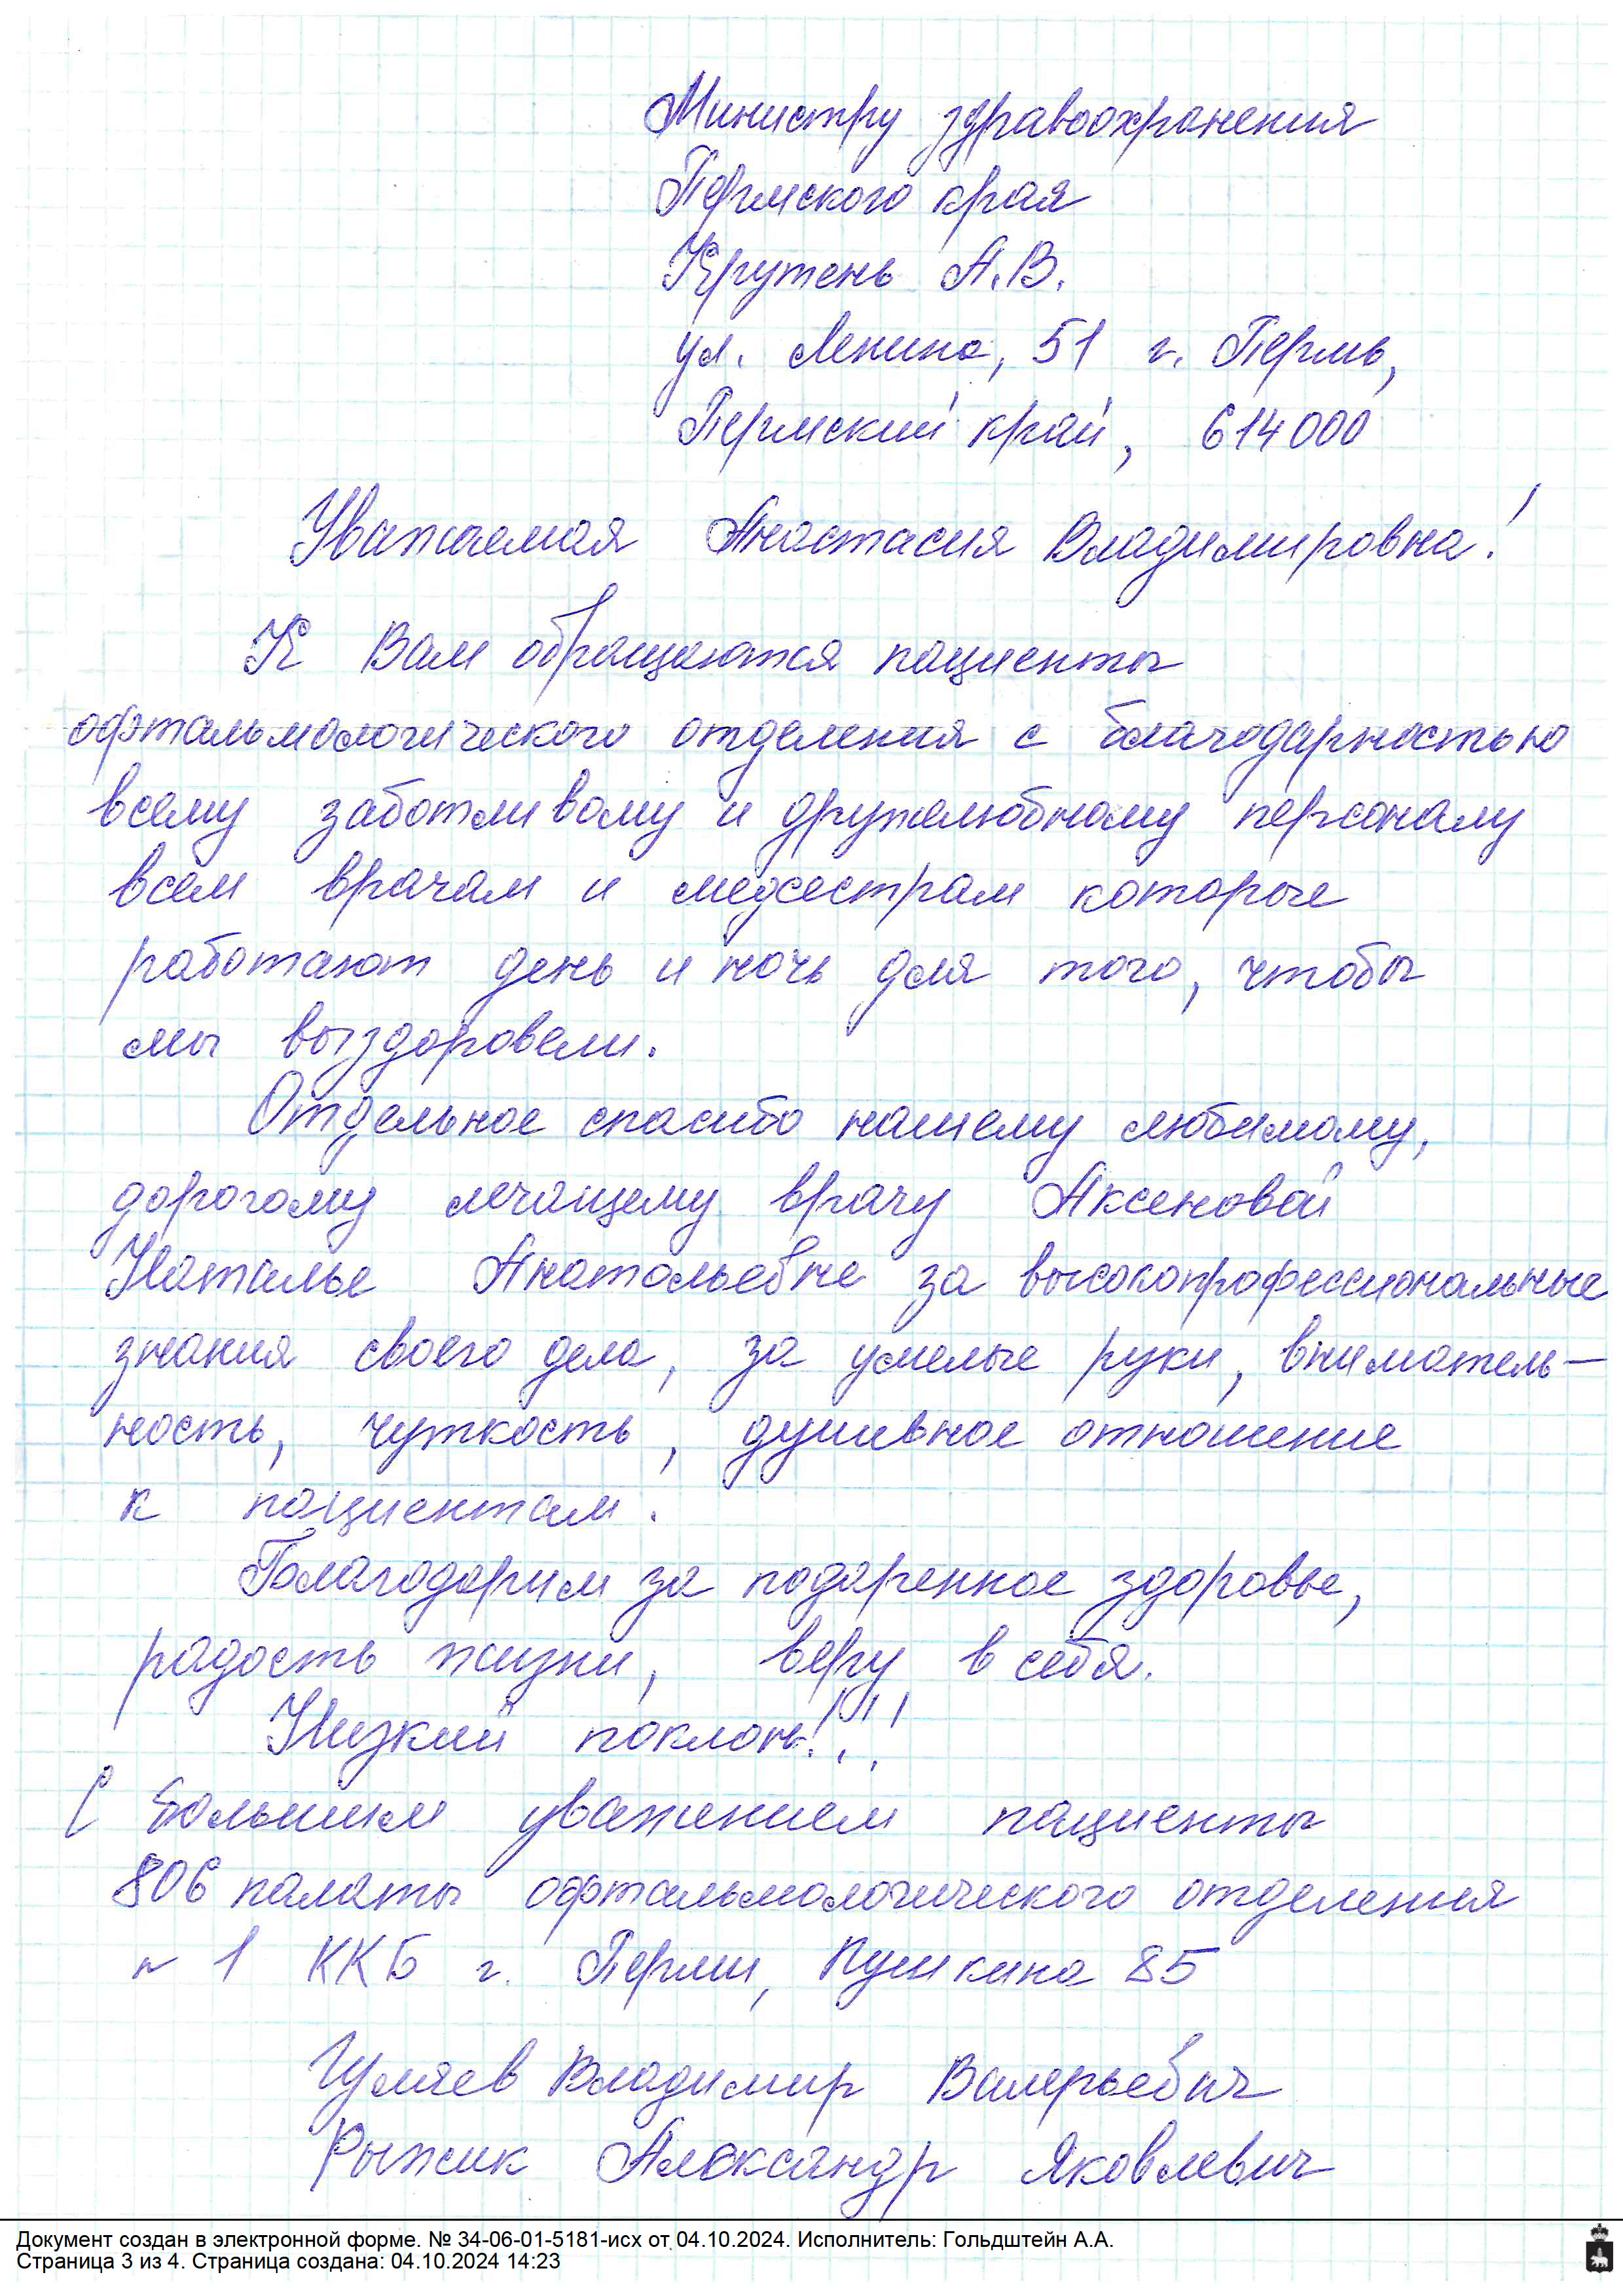 Министру здравоохранения
Пермского края
Крутень А.В.
ул. Ленина, 51 г. Пермь,
Пермский край, 614000
Уважаемая Анастасия Владимировна!
К Вам обращаются пациенты
офтальмологического отделения с благодарностью
всему заботливому и дружелюбному персоналу
всем врачам и медсестрам которые
работают день и ночь для того, чтобы
мы выздоровели.
Отдельное спасибо нашему любимому,
дорогому лечащему врачу Аксеновой
Наталье Анатольевне за высокопрофессиональные
знания своего дела, за умелые руки, вниматель-
ность, чуткость, душевное отношение
к пациентам.
Благодарим за подаренное здоровье,
радость жизни, веру в себя.
Низкий поклон!!!
С большим уважением пациенты
806 палаты офтальмологического отделения
н 1 ККБ г. Перми, Пушкина 85
Гуляев Владимир Валерьевич
Рыжик Александр Яковлевич
Документ создан в электронной форме. № 34-06-01-5181-исх от 04.10.2024. Исполнитель: Гольдштейн А.А.
Страница 3 из 4. Страница создана: 04.10.2024 14:23